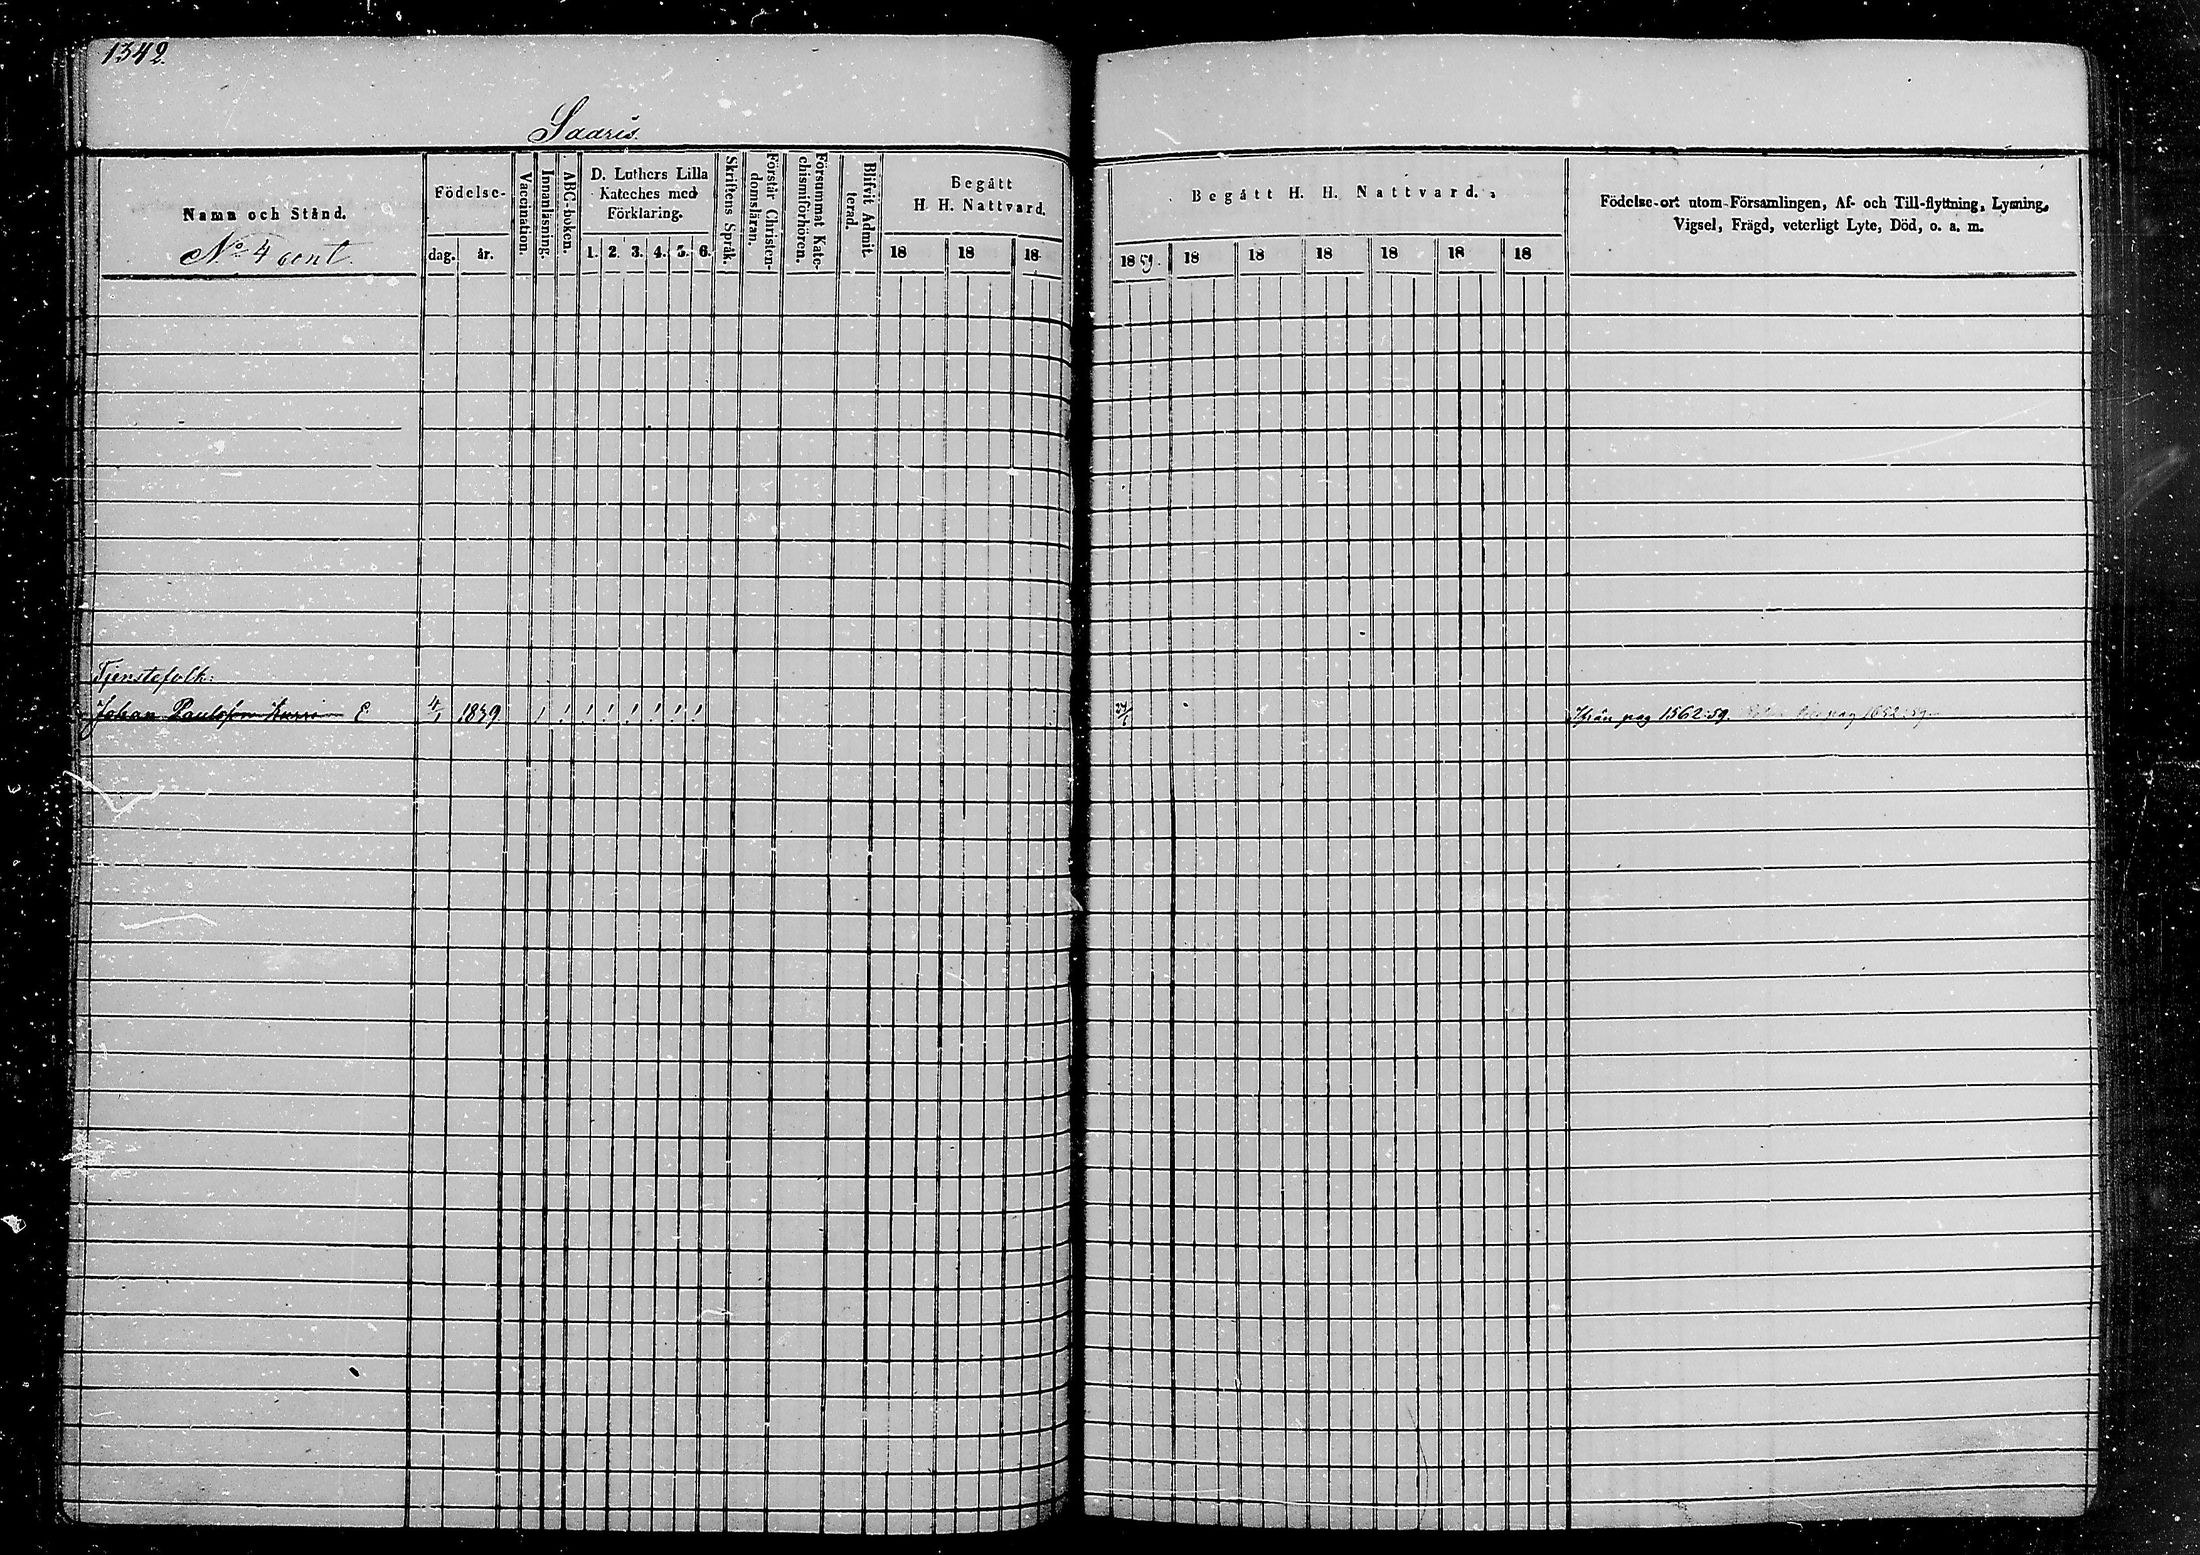 1342.
Saaris.
Namn och Stånd.
No 4 cont.
Födelse-
dag. år.
Vaccination.
Innanläsning.
ABC-boken.
D. Luthers Lilla
Kateches med
Förklaring.
1. 2. 3. 4. 5. 6.
Skriftens Språk.
Förstår Christen-
domsläran.
Försummat Kate-
chismiförhören.
Blifvit Admit-
terad.
Begått
H. H. Nattvard.
18 18 18
Begått H. H. Nattvard.
1859. 18 18 18 18 18 18
Födelse-ort utom Församlingen, Af- och Till-flyttning, Lysning,
Vigsel, Frägd, veterligt Lyte, Död, o. a. m.
Tjenstefolk:
Johan Paulsson Kurri E. 4/1 1839 Ifrån pag 1562:59. pag 1652:59